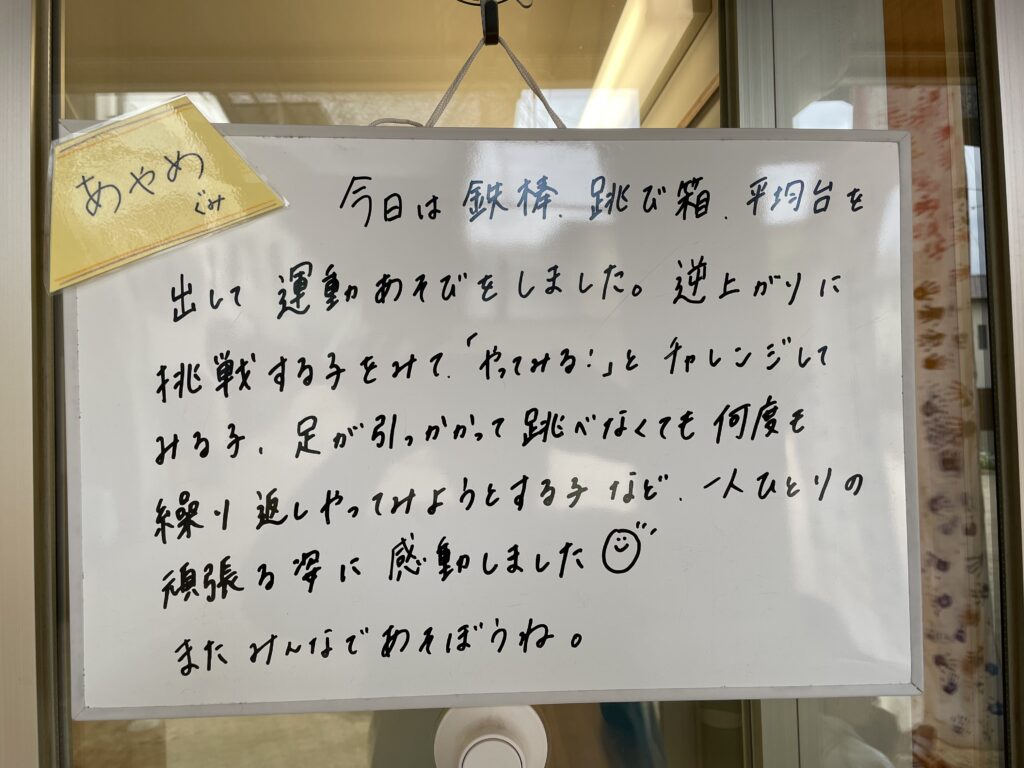 あやめ
ぐみ
今日は 鉄棒、跳び箱、平均台を
出して 運動あそびをしました。逆上がりに
挑戦する子をみて、「やってみる!」と チャレンジして
みる子、足が引っかかって 跳べなくても 何度も
繰り返しやってみようとする子 など、一人ひとりの
頑張る姿に 感動しました
また みんなであそぼうね。